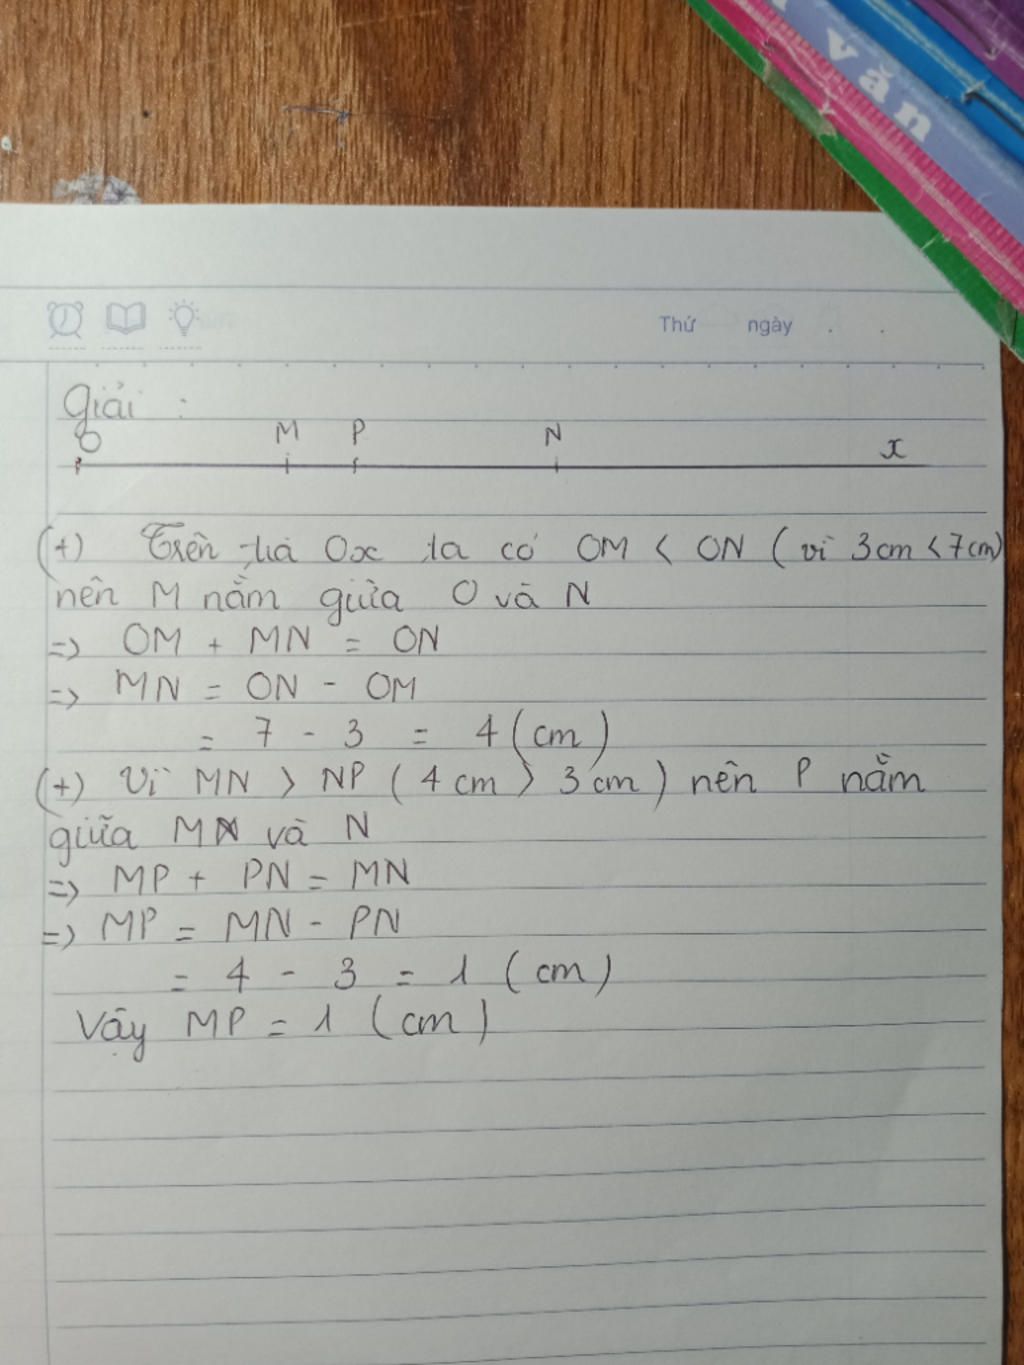 văn
Thứ ngày . .
Giải :
O M P N x
(+) Trên tia Ox ta có OM < ON (vì 3cm < 7cm)
nên M nằm giữa O và N
=> OM + MN = ON
=> MN = ON - OM
= 7 - 3 = 4 (cm)
(+) Vì MN > NP ( 4 cm > 3 cm ) nên P nằm
giữa M và N
=> MP + PN = MN
=> MP = MN - PN
= 4 - 3 = 1 (cm)
Vậy MP = 1 (cm)